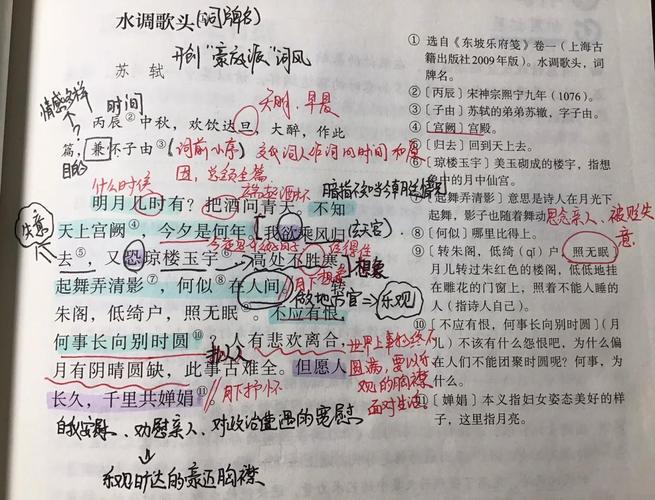 水调歌头(词牌名)
苏 轼
开创“豪放派”词风
情感多样
时间
天明,早晨
丙辰②中秋,欢饮达旦,大醉,作此
篇,兼怀子由③
目的
[词前小序]交代词人作词的时间和原
因,总领全篇.
什么时候
端起酒杯
明月几时有?把酒问青天。不知
暗指不知当今朝廷情况
天上宫阙④,今夕是何年。我欲乘风归
(去天宫)
失意
去⑤,又恐琼楼玉宇⑥,高处不胜寒。
想象
起舞弄清影⑦,何似⑧在人间。转
月下
做地方官⇒乐观
朱阁,低绮户,照无眠⑨。不应有恨,
何事长向别时圆⑩?人有悲欢离合,
月有阴晴圆缺,此事古难全。但愿人
长久,千里共婵娟⑪。
月下抒怀
世界上事物终不
圆满,要以乐
观的胸襟
面对生活.
自我宽慰、劝慰亲人、对政治遭遇的宽慰
乐观旷达的豪迈胸襟
① 选自《东坡乐府笺》卷一(上海古
籍出版社2009年版)。水调歌头,词
牌名。
②〔丙辰〕宋神宗熙宁九年(1076)。
③〔子由〕苏轼的弟弟苏辙,字子由。
④〔宫阙〕宫殿。
⑤〔归去〕回到天上去。
⑥〔琼楼玉宇〕美玉砌成的楼宇,指想
象中的月中仙宫。
⑦〔起舞弄清影〕意思是诗人在月光下
起舞,影子也随着舞动
思念亲人、被贬失
意.
⑧〔何似〕哪里比得上。
⑨〔转朱阁,低绮(qǐ)户,照无眠〕
月儿转过朱红色的楼阁,低低地挂
在雕花的门窗上,照着不能入睡的
人(指诗人自己)。
⑩〔不应有恨,何事长向别时圆〕(月
儿)不该有什么怨恨吧,为什么偏
在人们不能团聚时圆呢?何事,为
什么。
⑪〔婵娟〕本义指妇女姿态美好的样
子,这里指月亮。